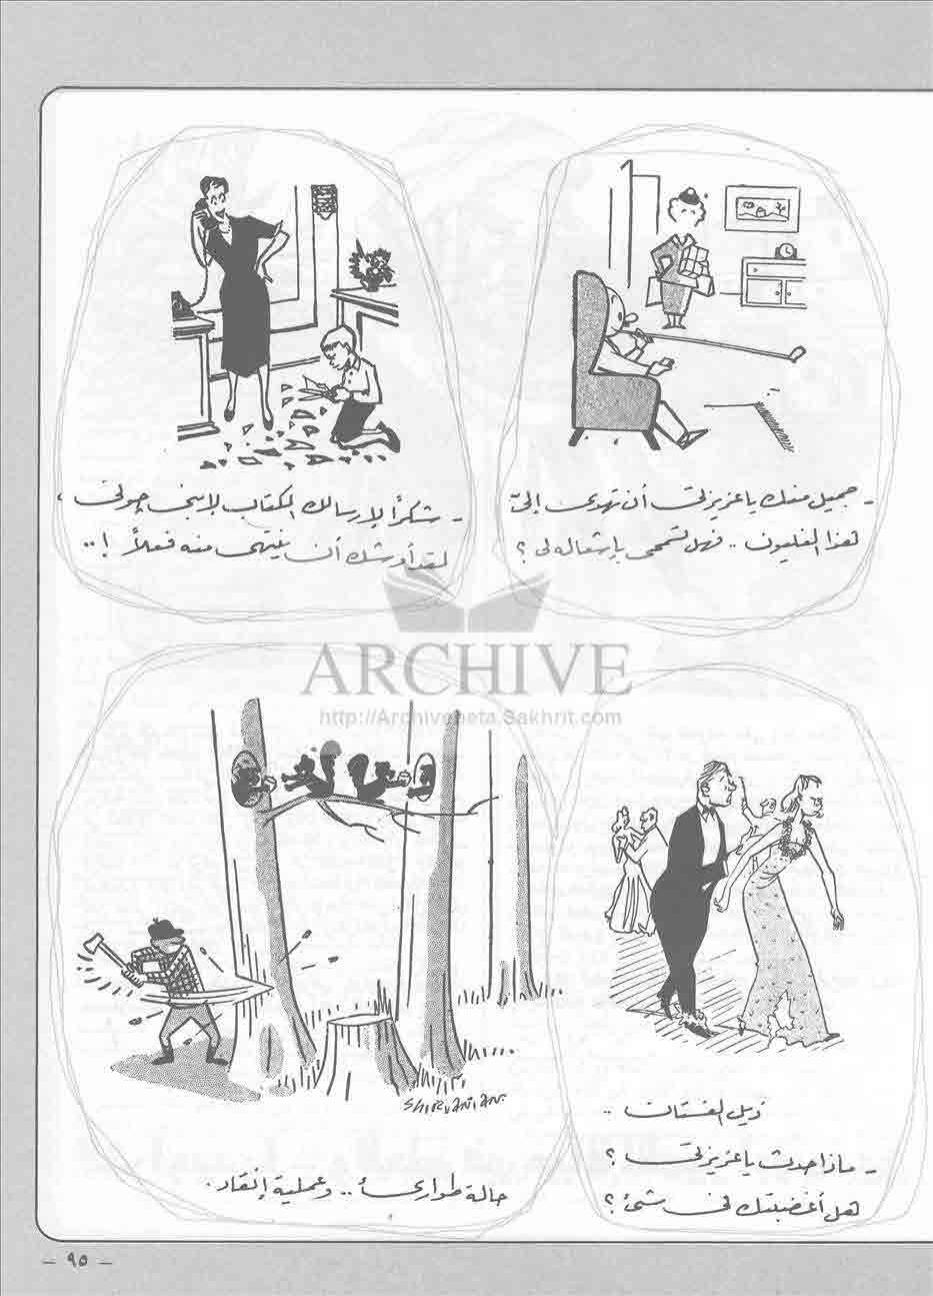 - جميل منك يا عزيزتى أن تهدى إلىّ
هذا الغليون .. فهل تسمحى بإشعاله لى ؟
- شكراً لإرسالك الكتاب لإبنى چونى ،
لقد أوشك أن ينتهى منه فعلاً !..
ARCHIVE
http://Archivebeta.Sakhrit.com
ذيل الفستان ..
- ماذا حدث يا عزيزتى ؟
هل أغضبتك فى شئ ؟
SHIRVANIAN
حالة طوارئ .. وعملية إنقاذ .
- ٩٥ -